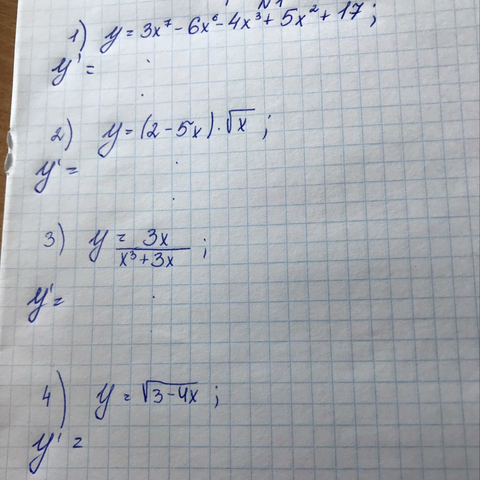 N1
1) y = 3x⁷ - 6x⁶ - 4x³ + 5x² + 17 ;
y' =
2) y = (2 - 5x) · √x ;
y' =
3) y = 3x / (x³ + 3x) ;
y' =
4) y = √(3 - 4x) ;
y' =